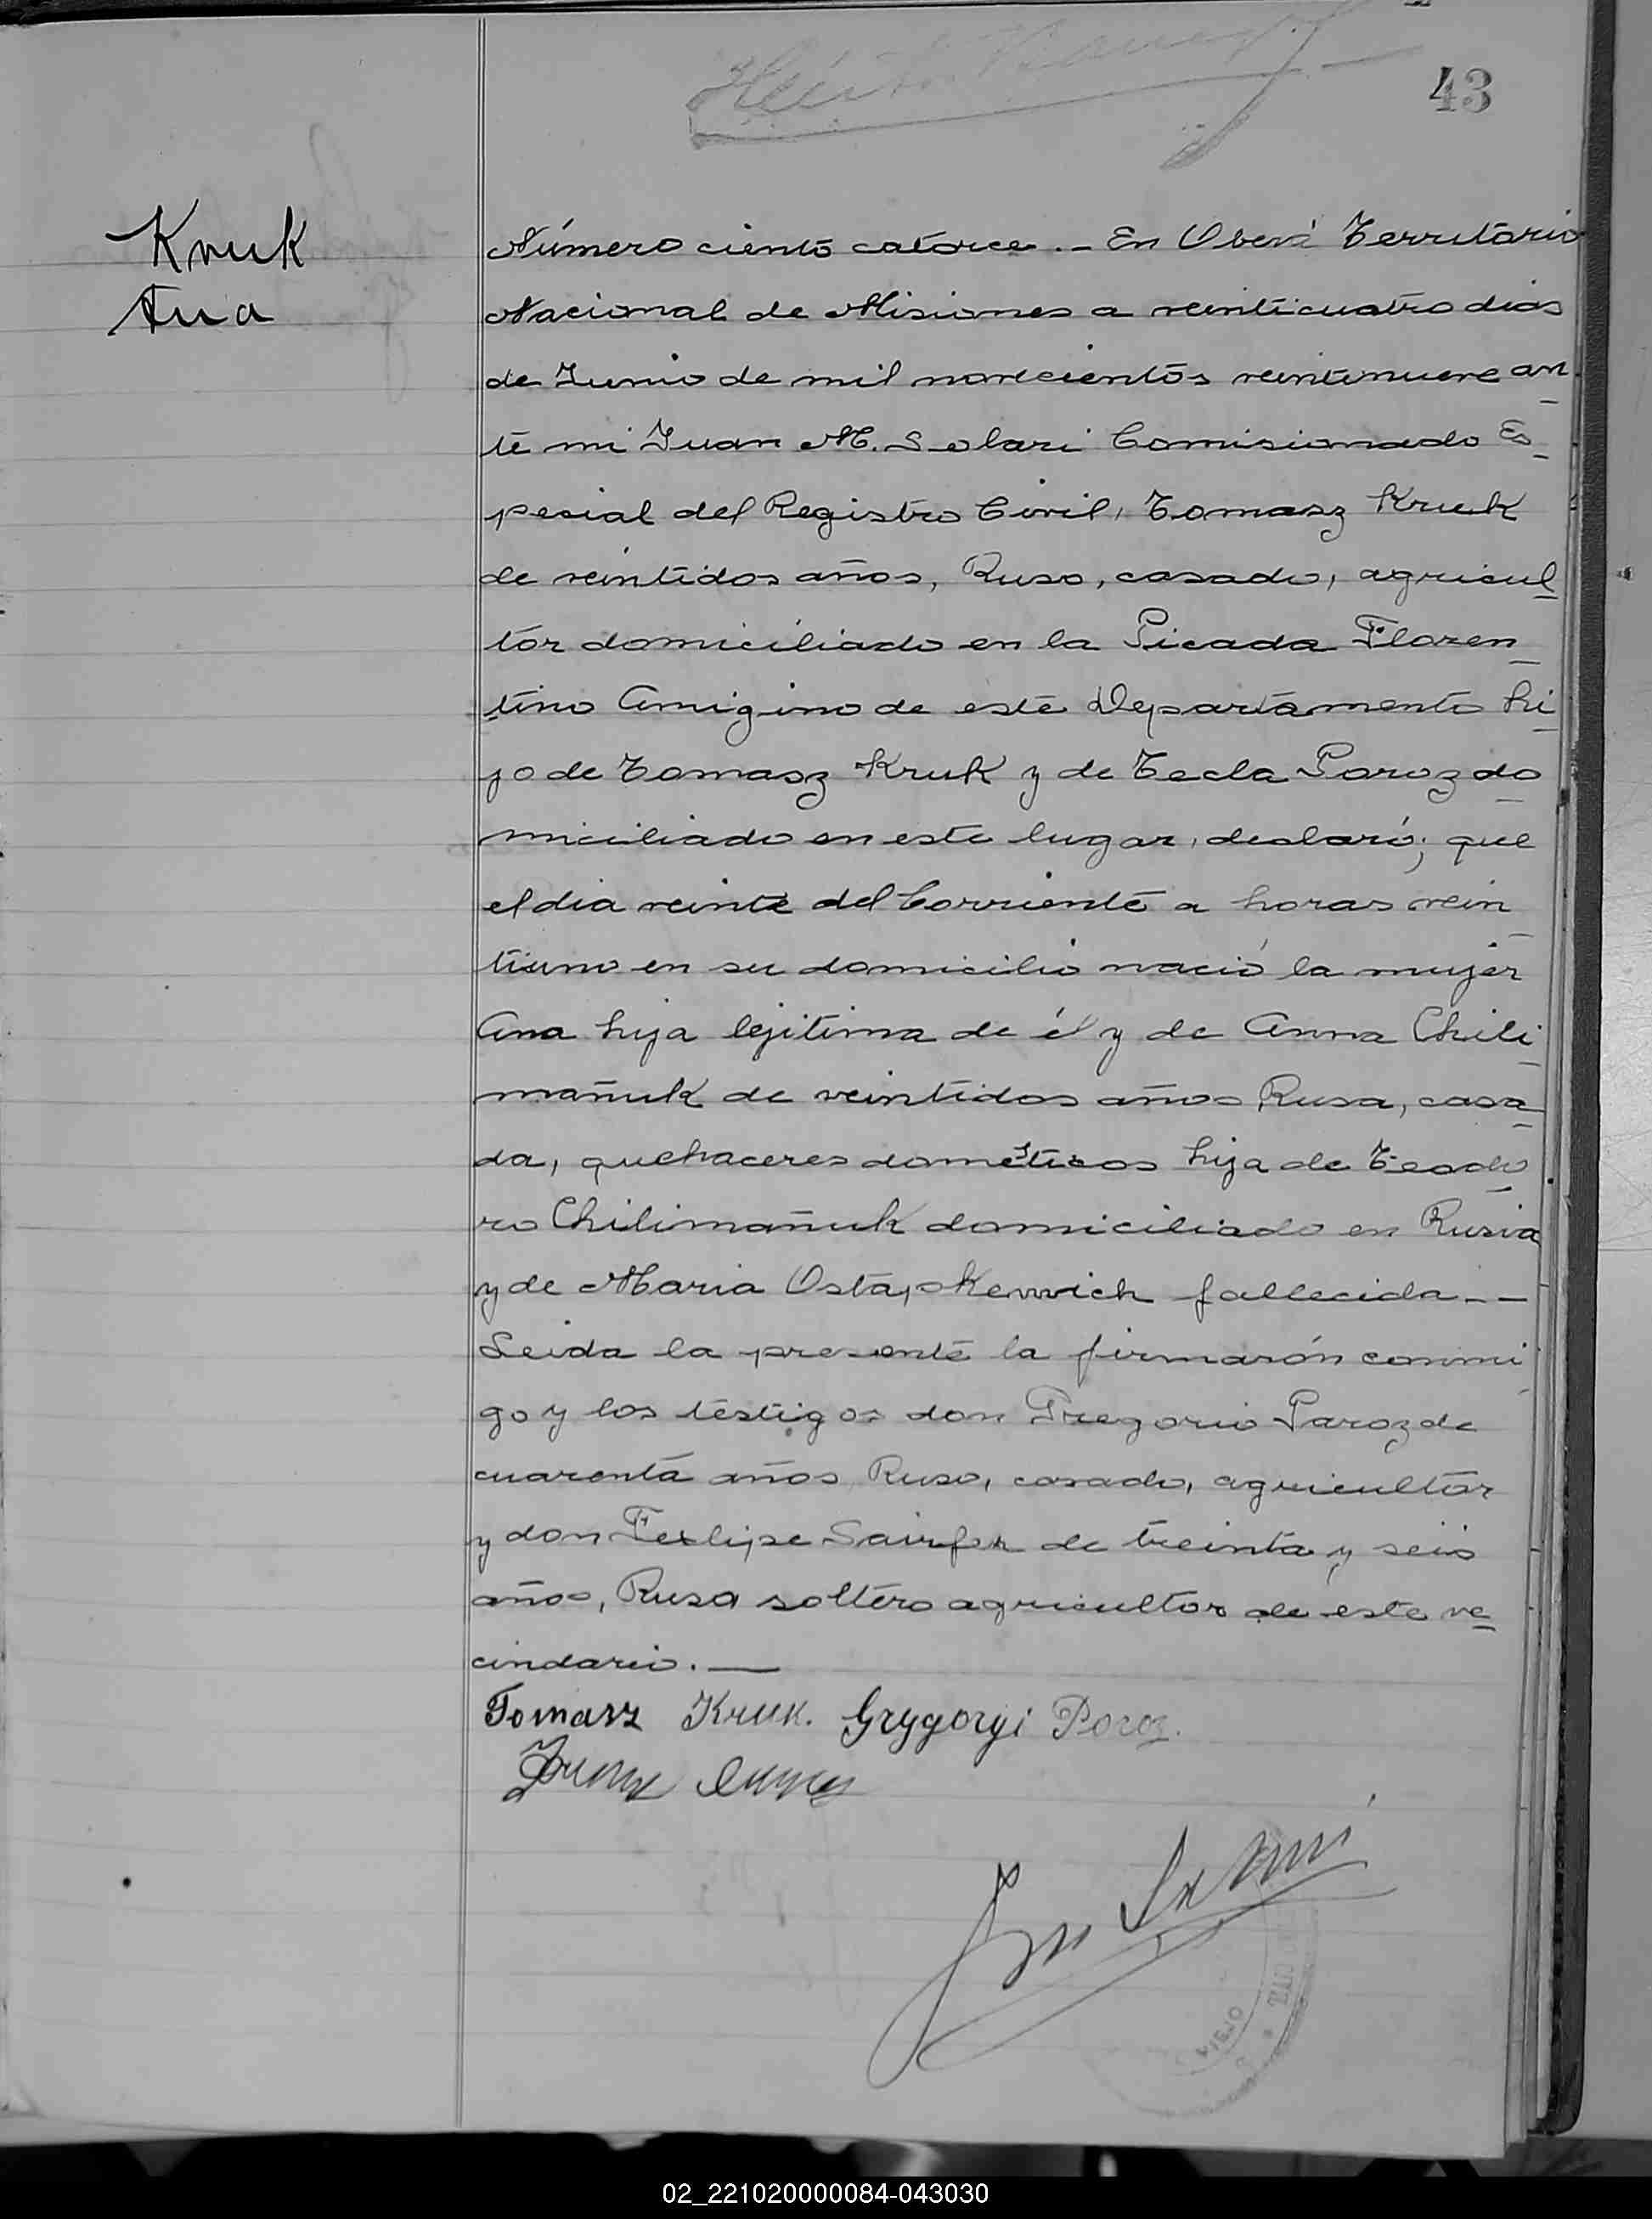 43
Kruk
Ana
Número ciento catorce.- En Oberá Territorio
Nacional de Misiones a veinticuatro dias
de Junio de mil novecientos veintinueve an
te mi Juan M. Solari Comisionado Es
pecial del Registro Civil, Tomasz Kruk
de veintidos años, Ruso, casado, agricul
tor domiciliado en la Picada Floren
tino Amigino de este Departamento hi
jo de Tomasz Kruk y de Tecla Poroz do
miciliado en este lugar, declaró; que
el dia veinte del Corriente a horas vein
tiuno en su domicilio nació la mujer
Ana hija lejitima de él y de Anna Chili
mañuk de veintidos años Rusa, casa
da, quehaceres dométicos hija de Teodo
ro Chilimañuk domiciliado en Rusia
y de Maria Ostapkewich fallecida--
Leida la presente la firmarón conmi
go y los testigos don Gregorio Paroz de
cuarenta años Ruso, casado, agricultor
y don de treinta y seis
años, Rusa soltero agricultor de este ve
cindario.—
Tomasz Kruk. Grygoryi Poroz.
02_221020000084-043030